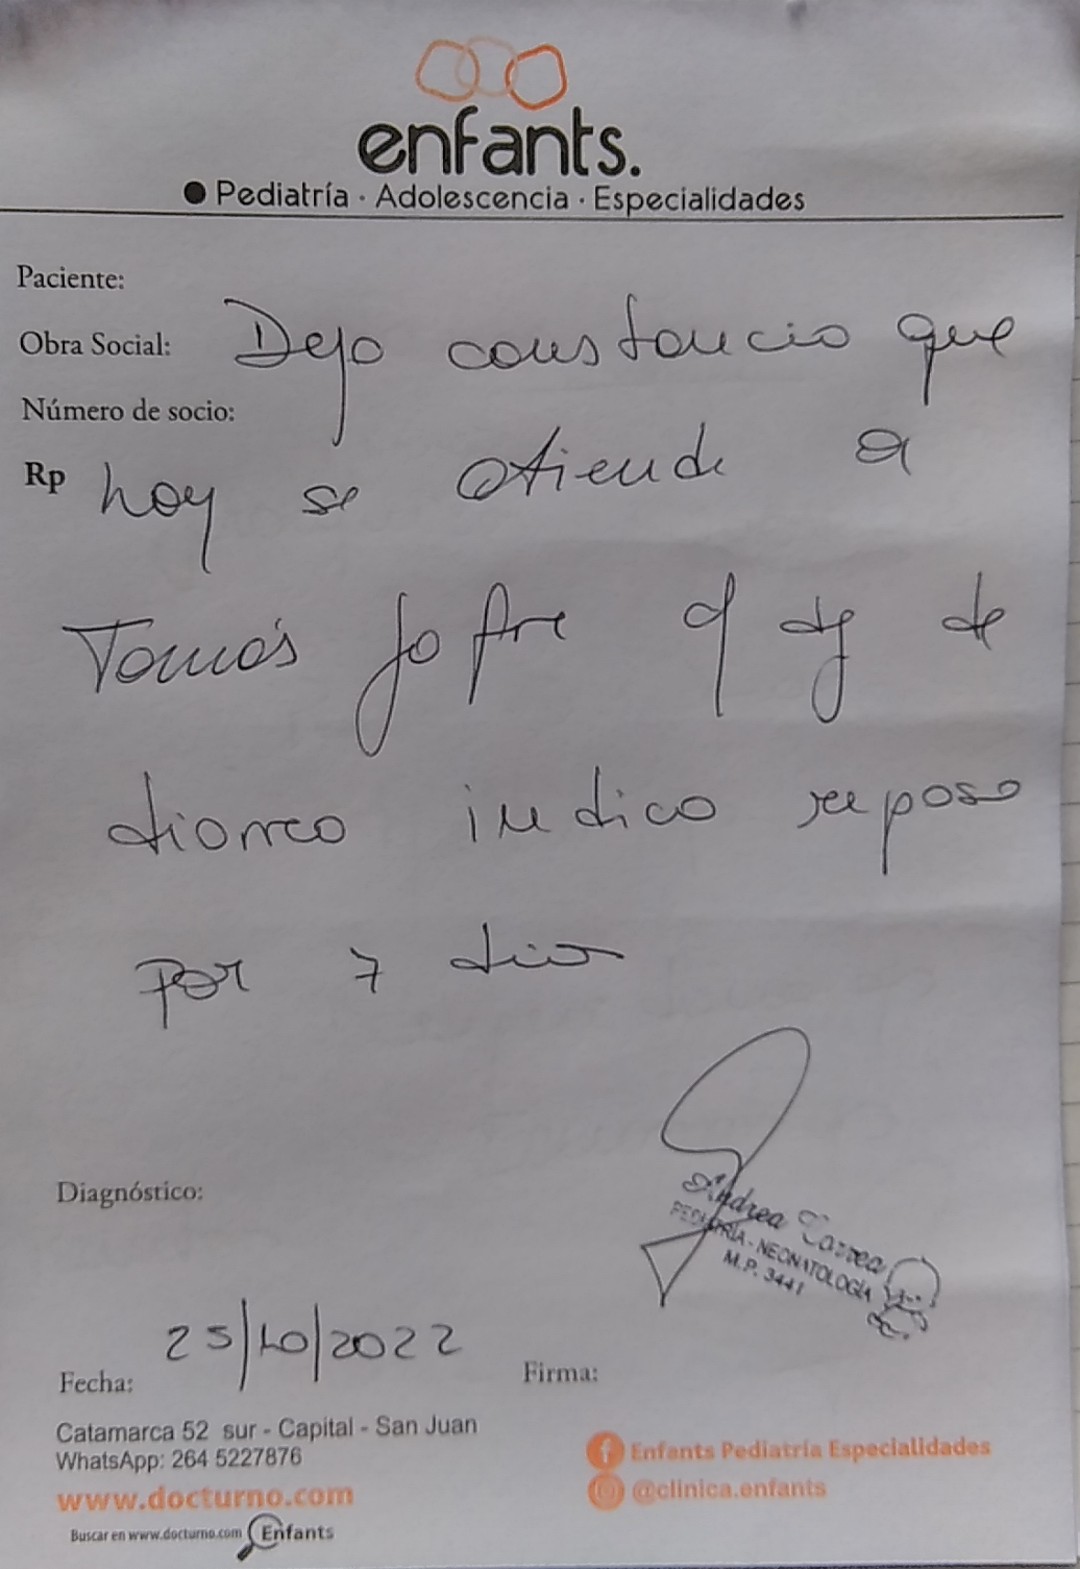 enfants.
Pediatría · Adolescencia · Especialidades
Paciente:
Obra Social: Dejo constancia que
Número de socio:
Rp hoy se atiende a
Tomás Jofre q dg de
diarrea indico reposo
por 7 dias
Andrea Correa
PEDIATRÍA - NEONATOLOGÍA
M.P. 3441
Diagnóstico:
Fecha: 25/10/2022
Firma:
Catamarca 52 sur - Capital - San Juan
WhatsApp: 264 5227876
www.docturno.com
Buscar en www.docturno.com Enfants
Enfants Pediatría Especialidades
@clinica.enfants